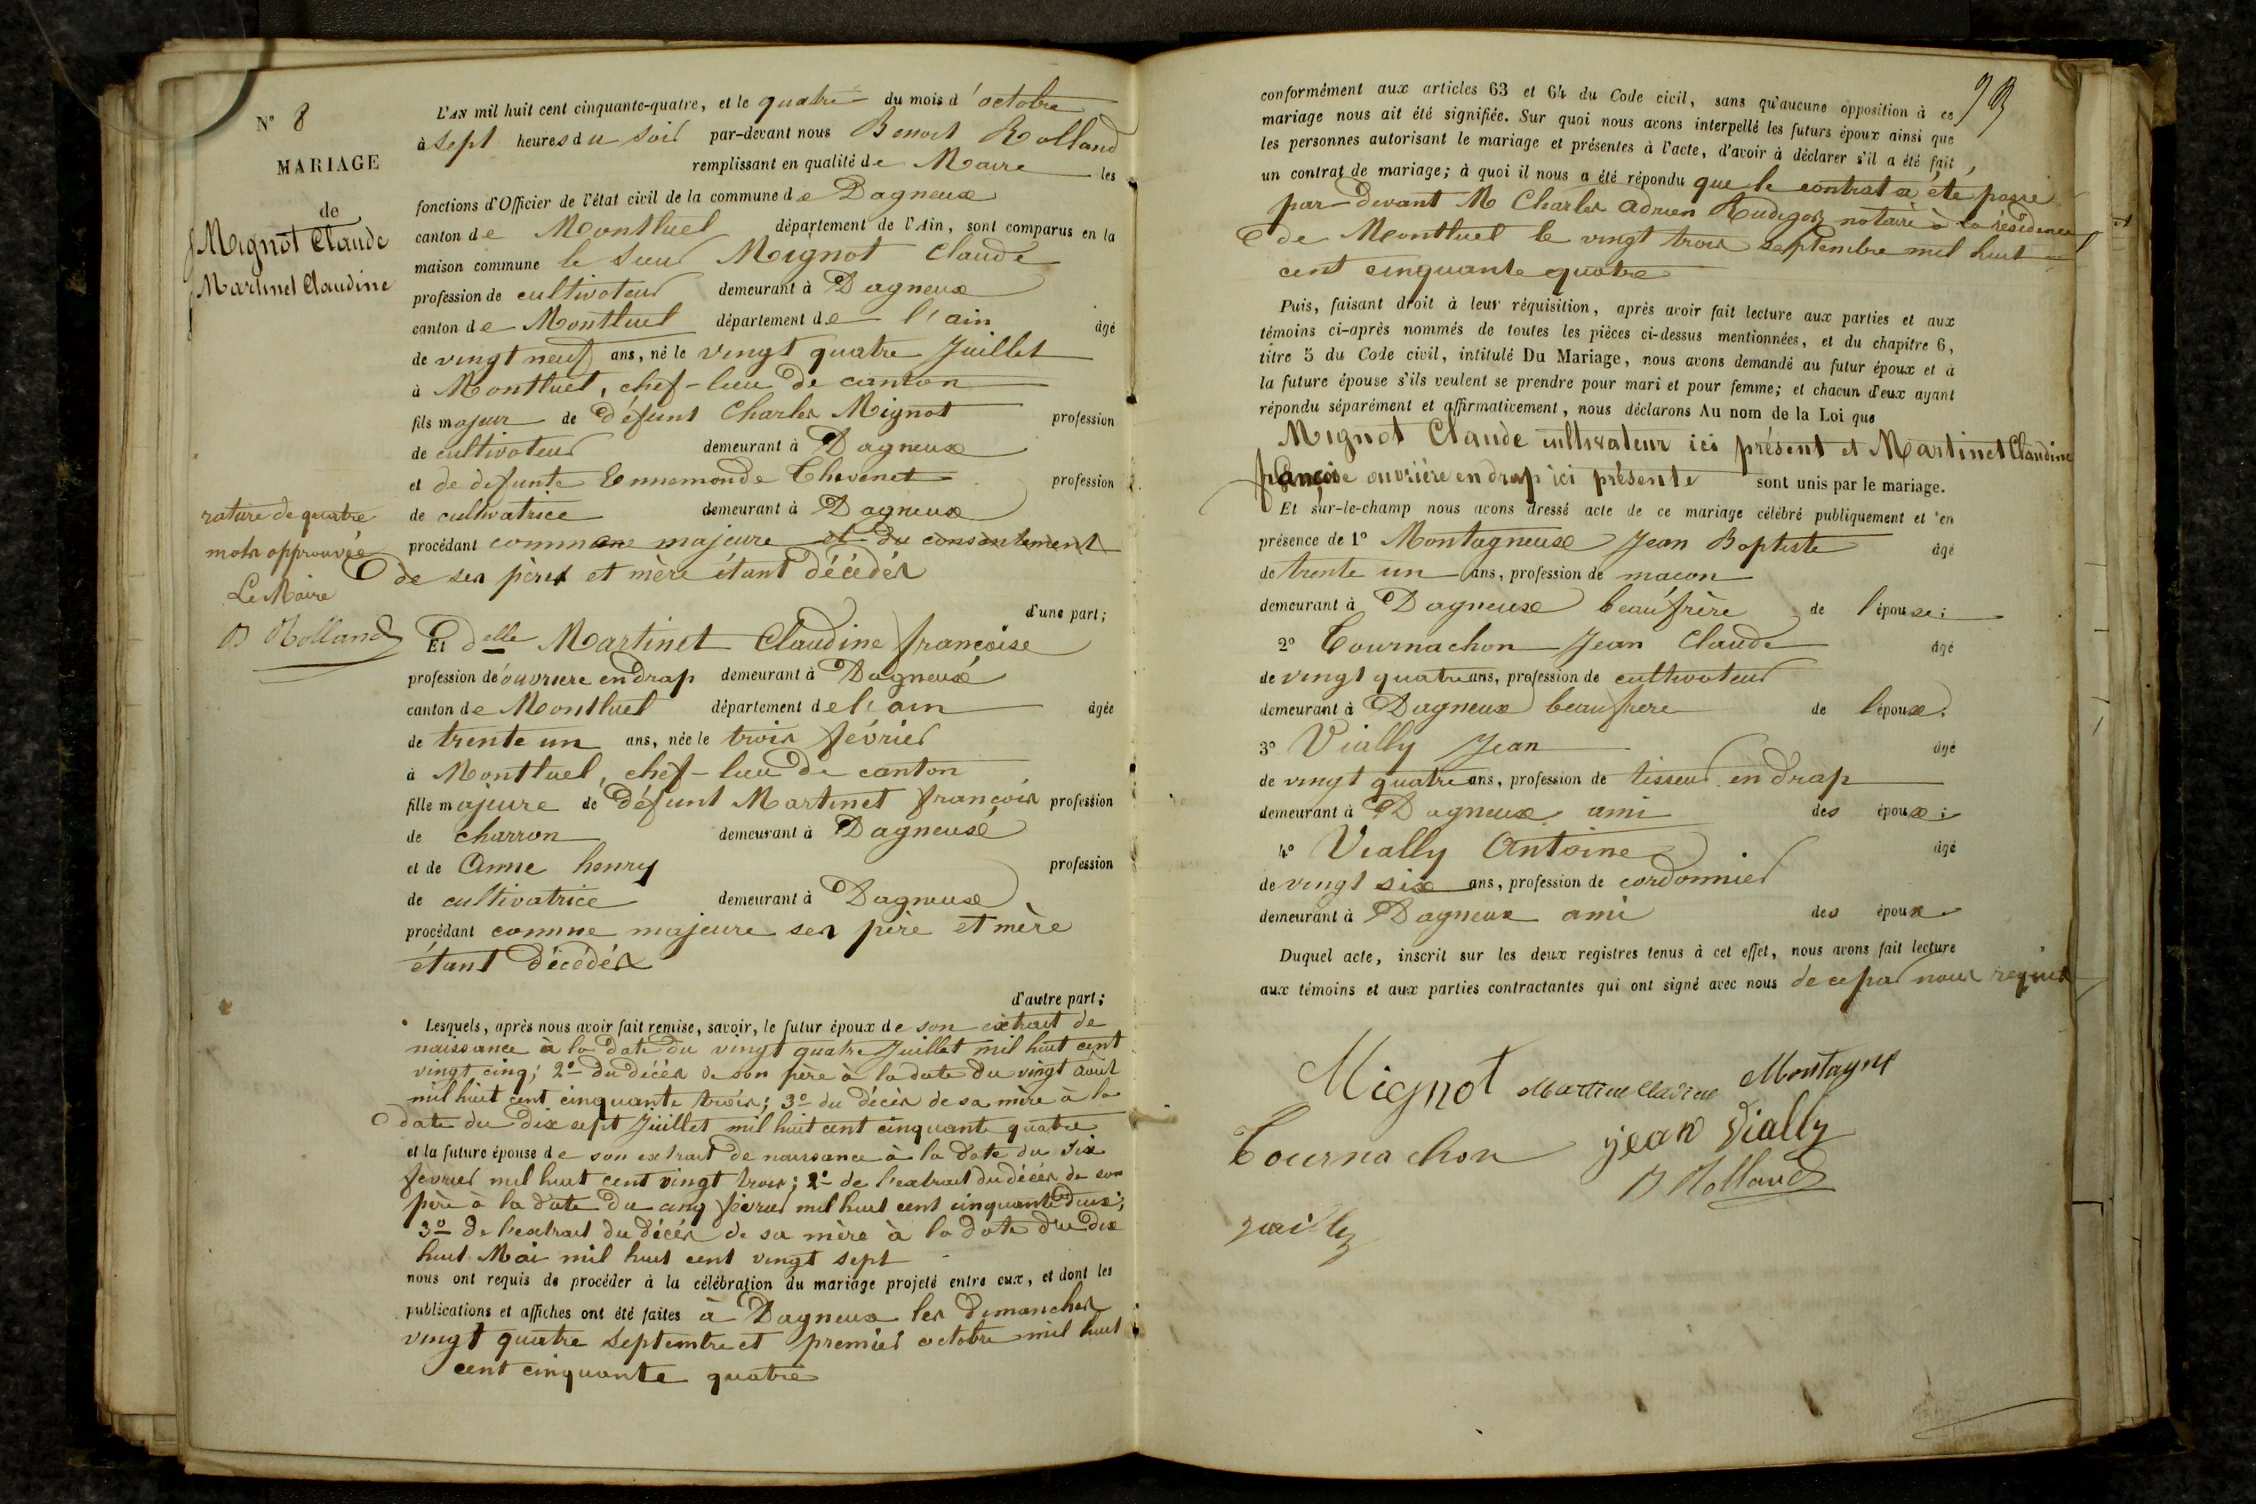 N° 8
MARIAGE
de
Mignot Claude
Martinet Claudine
rature de quatre
mots approuvée
Le Maire
B Rolland
L'AN mil huit cent cinquante-quatre, et le quatre du mois d'octobre
à sept heures du soir par-devant nous Benoit Rolland
remplissant en qualité de Maire les
fonctions d'Officier de l'état civil de la commune de Dagneux
canton de Montluel département de l'Ain, sont comparus en la
maison commune le Sieur Mignot Claude
profession de cultivateur demeurant à Dagneux
canton de Montluel département de l'ain âgé
de vingt neuf ans, né le vingt quatre Juillet
à Montluel, chef-lieu de canton
fils majeur de défunt Charles Mignot profession
de cultivateur demeurant à Dagneux
et de defunte Ennemonde Thevenet profession
de cultivatrice demeurant à Dagneux
procédant comme majeure et du consentement
de ses pères et mère étant décédés
d'une part;
Et delle Martinet Claudine françoise
profession d'ouvriere en drap demeurant à Dagneux
canton de Montluel département de l'ain âgée
de trente un ans, née le trois février
à Montluel, chef-lieu de canton
fille majeure de défunt Martinet françois profession
de charron demeurant à Dagneux
et de Anne henry profession
de cultivatrice demeurant à Dagneux
procédant comme majeure ses père et mère
étant décédés
d'autre part;
Lesquels, après nous avoir fait remise, savoir, le futur époux de son extrait de
naissance à la date du vingt quatre Juillet mil huit cent
vingt cinq; 2° du décès de son père à la date du vingt août
mil huit cent cinquante trois; 3° du décès de sa mère à la
date du dix sept Juillet mil huit cent cinquante quatre
et la future épouse de son extrait de naissance à la date du six
fevrier mil huit cent vingt trois; 2° de l'extrait du décès de son
père à la date du cinq fevrier mil huit cent cinquante deux;
3° de l'extrait du décès de sa mère à la date du dix
huit Mai mil huit cent vingt sept
nous ont requis de procéder à la célébration du mariage projeté entre eux, et dont les
publications et affiches ont été faites à Dagneux les dimanches
vingt quatre Septembre et premier octobre mil huit
cent cinquante quatre
93
conformément aux articles 63 et 64 du Code civil, sans qu'aucune opposition à ce
mariage nous ait été signifiée. Sur quoi nous avons interpellé les futurs époux ainsi que
les personnes autorisant le mariage et présentes à l'acte, d'avoir à déclarer s'il a été fait
un contrat de mariage; à quoi il nous a été répondu que le contrat a été passé
par-devant M Charles Adrien Audigoz notaire à la résidence
de Montluel le vingt trois septembre mil huit
cent cinquante quatre
Puis, faisant droit à leur réquisition, après avoir fait lecture aux parties et aux
témoins ci-après nommés de toutes les pièces ci-dessus mentionnées, et du chapitre 6,
titre 5 du Code civil, intitulé Du Mariage, nous avons demandé au futur époux et à
la future épouse s'ils veulent se prendre pour mari et pour femme; et chacun d'eux ayant
répondu séparément et affirmativement, nous déclarons Au nom de la Loi que
Mignot Claude cultivateur ici présent et Martinet Claudine
françoise ouvrière en drap ici présente sont unis par le mariage.
Et sur-le-champ nous avons dressé acte de ce mariage célébré publiquement et en
présence de 1° Montagneux Jean Baptiste âgé
de trente un ans, profession de macon
demeurant à Dagneux beaufrère de l'épouse;
2° Tournachon Jean Claude âgé
de vingt quatre ans, profession de cultivateur
demeurant à Dagneux beaufrere de l'époux;
3° Vially Jean âgé
de vingt quatre ans, profession de tisseur en drap
demeurant à Dagneux ami des époux;
4° Vially Antoine âgé
de vingt six ans, profession de cordonnier
demeurant à Dagneux ami des époux
Duquel acte, inscrit sur les deux registres tenus à cet effet, nous avons fait lecture
aux témoins et aux parties contractantes qui ont signé avec nous de ce par nous requis
Mignot Martinet Claudine Montagne
Tournachon jean Vially
B Rolland